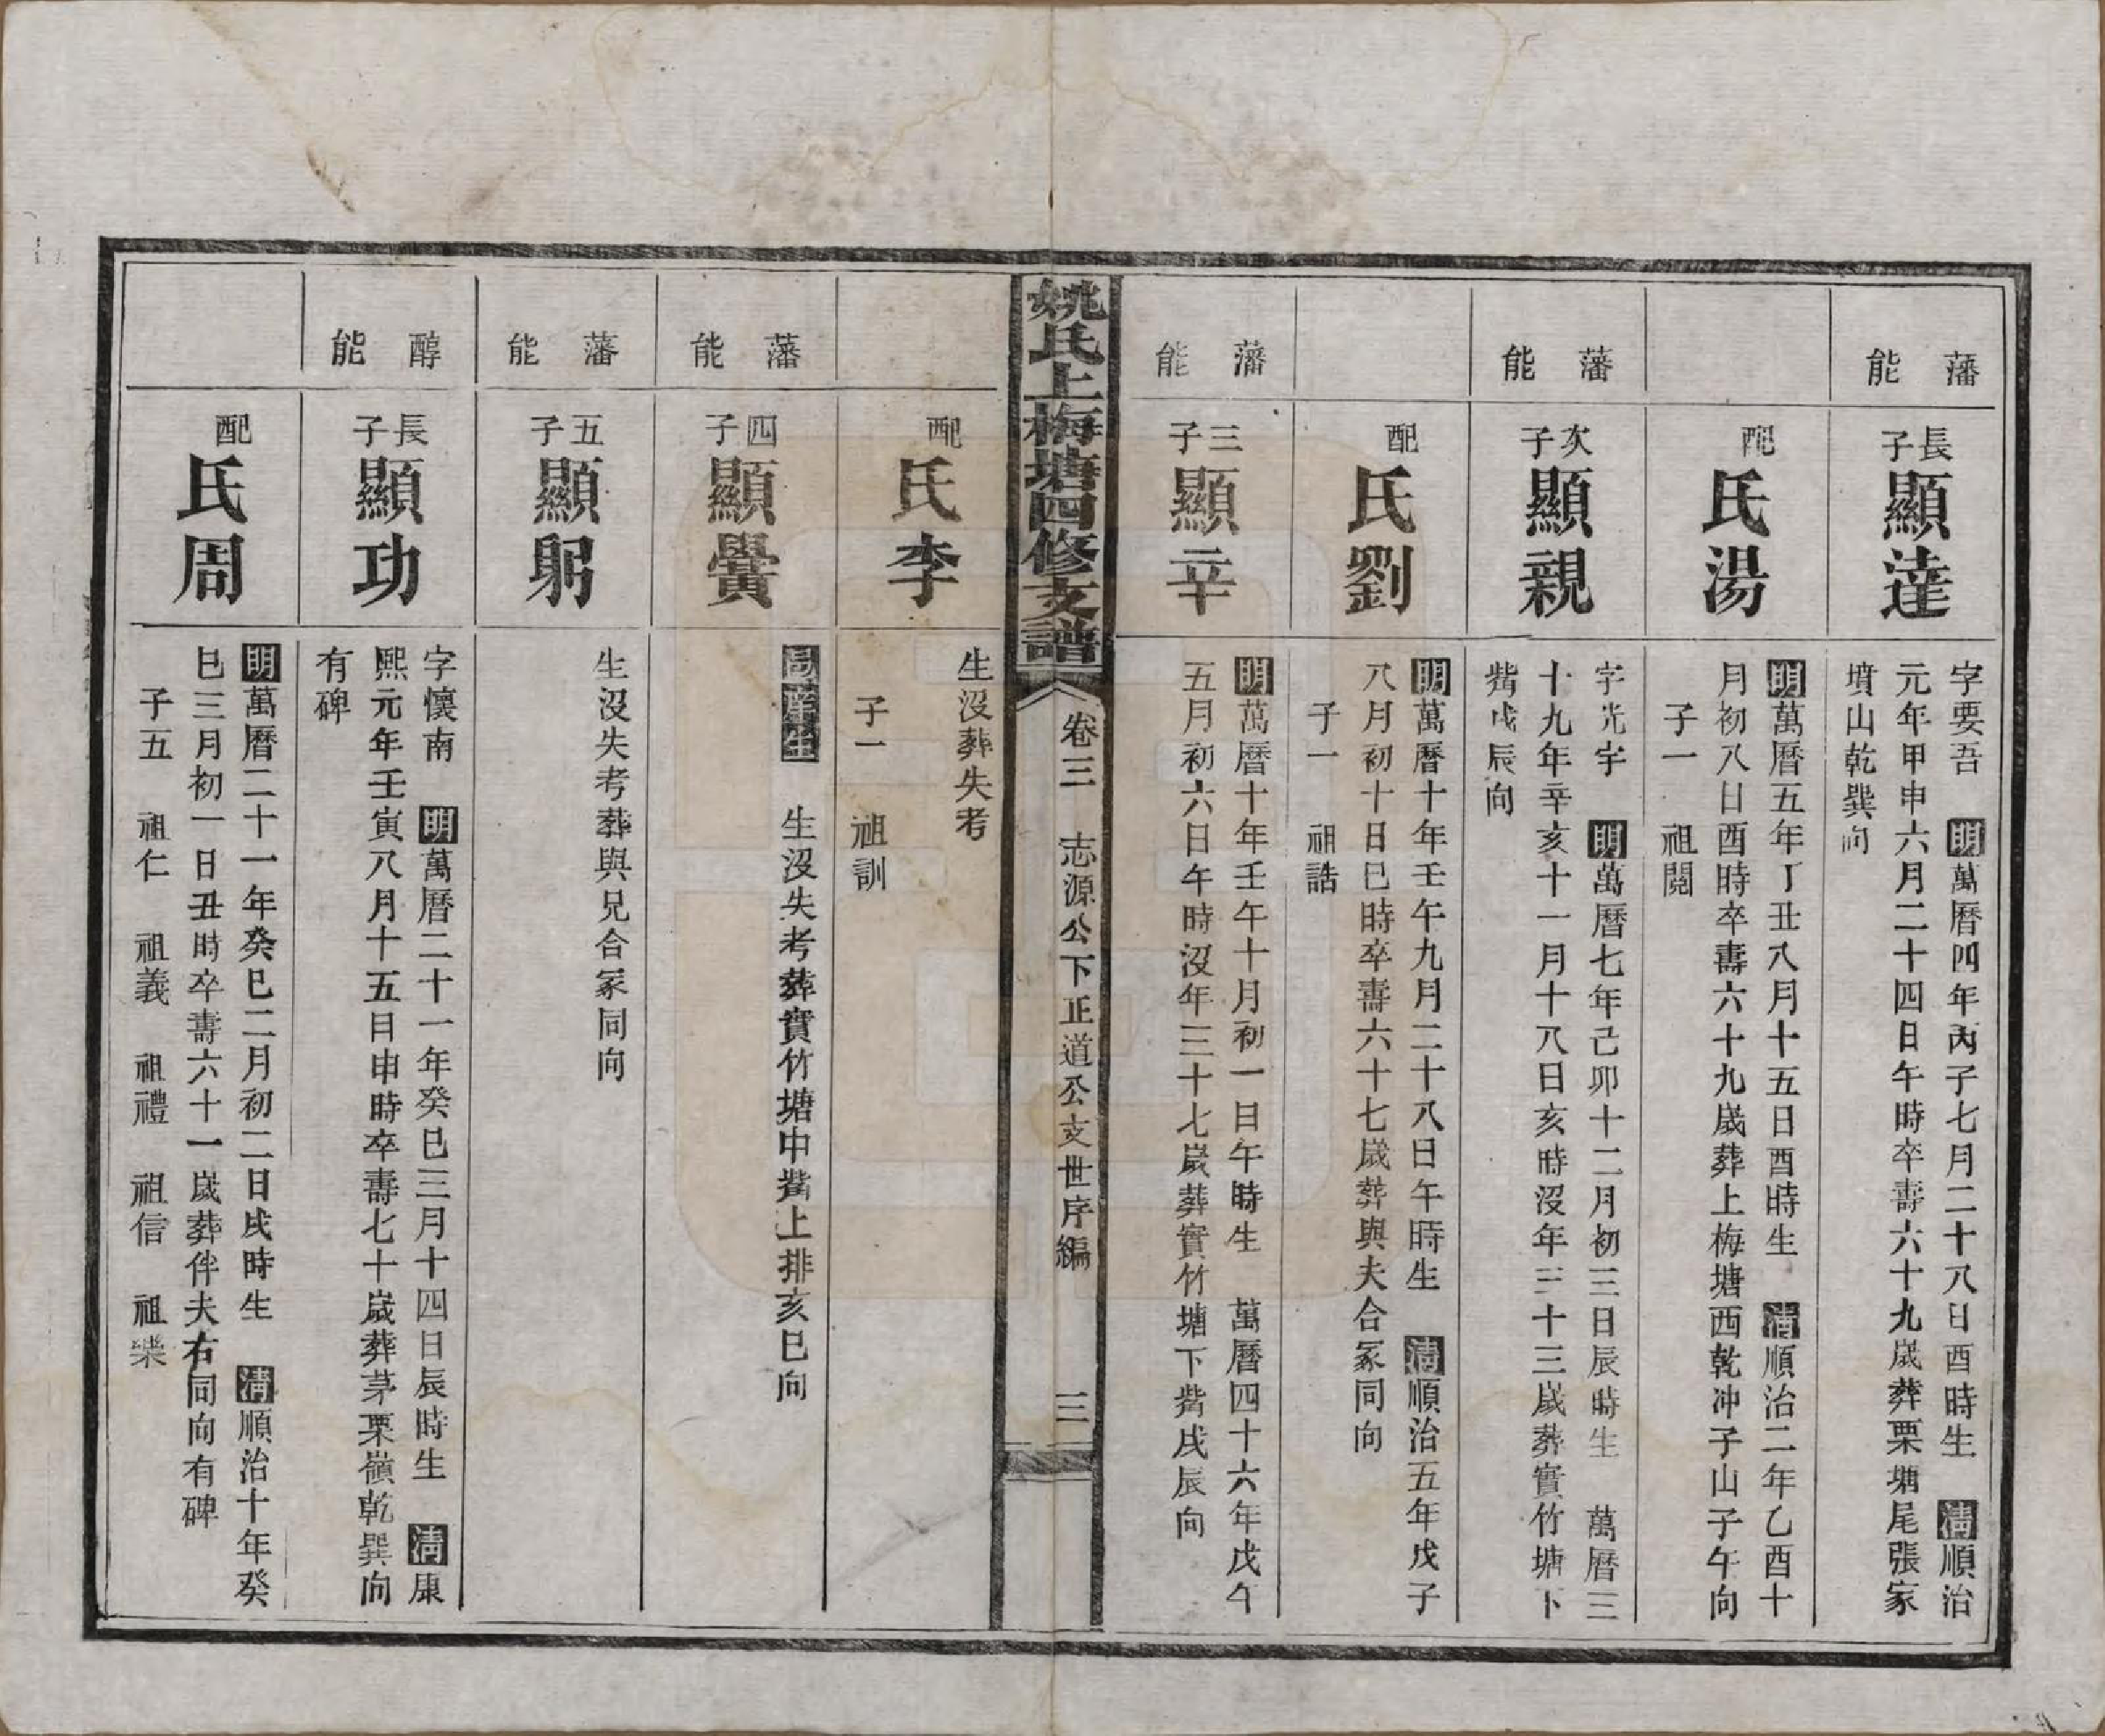 藩能
長子
顯達
字要吾　明萬曆四年丙子七月二十八日酉時生　淸順治
元年甲申六月二十四日午時卒壽六十九歲葬栗塘尾張家
墳山乾巽向
配
氏湯
明萬曆五年丁丑八月十五日酉時生　淸順治二年乙酉十
月初八日酉時卒壽六十九歲葬上梅塘西乾冲子山子午向
子一　祖閱
藩能
次子
顯親
字光宇　明萬曆七年己卯十二月初三日辰時生　萬曆三
十九年辛亥十一月十八日亥時沒年三十三歲葬實竹塘下
嘴戌辰向
配
氏劉
明萬曆十年壬午九月二十八日午時生　淸順治五年戊子
八月初十日巳時卒壽六十七歲葬與夫合冢同向
子一　祖誥
藩能
三子
顯辛
明萬曆十年壬午十月初一日午時生　萬曆四十六年戊午
五月初六日午時沒年三十七歲葬實竹塘下嘴戌辰向
姚氏上梅塘四修支譜
卷三　志源公下正道公支世序編
三
配
氏李
生沒葬失考
子一　祖訓
藩能
四子
顯黌
生沒失考葬實竹塘中嘴上排亥巳向
藩能
五子
顯躬
生沒失考葬與兄合冢同向
醇能
長子
顯功
字懷南　明萬曆二十一年癸巳三月十四日辰時生　淸康
熙元年壬寅八月十五日申時卒壽七十歲葬茅栗嶺乾巽向
有碑
配
氏周
明萬曆二十一年癸巳二月初二日戌時生　淸順治十年癸
巳三月初一日丑時卒壽六十一歲葬伴夫右同向有碑
子五　祖仁　祖義　祖禮　祖信　祖樂